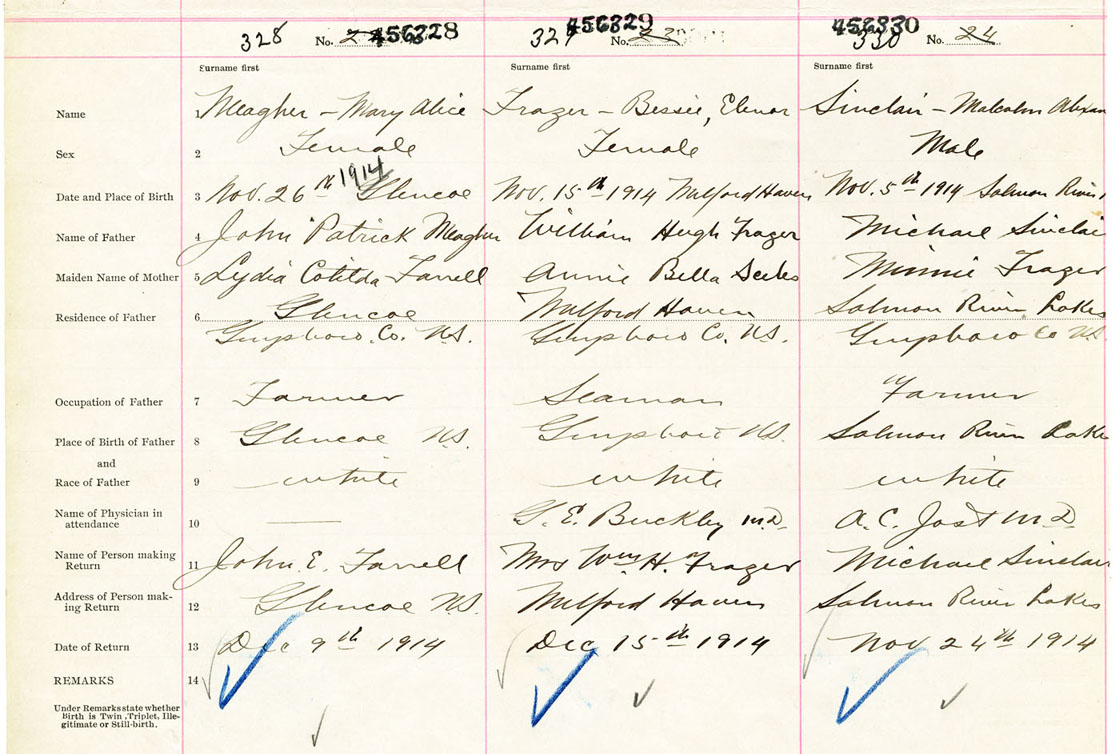 328 No. 456328 329 456329 No. 23 456330 330 No. 24
Surname first Surname first Surname first
Name 1 Meagher – Mary Alice Frazer – Bessie, Elenor Sinclair – Malcolm
Sex 2 Female Female Male
Date and Place of Birth 3 Nov. 26th 1914 Glencoe Nov. 15th 1914 Milford Haven Nov. 5th 1914 Salmon River
Name of Father 4 John Patrick Meagher William Hugh Frazer Michael Sinclair
Maiden Name of Mother 5 Lydia Cotilda Farrell Annie Bella Minnie Frazer
Residence of Father 6 Glencoe Milford Haven Salmon River Lakes
Guysboro. Co. N.S. Guysboro Co. N.S. Guysboro Co N.S.
Occupation of Father 7 Farmer Seaman Farmer
Place of Birth of Father 8 Glencoe N.S. Guysboro N.S. Salmon River Lake
and
Race of Father 9 white white white
Name of Physician in
attendance 10 — G. E. Buckley M.D. A. C. Jost M D
Name of Person making
Return 11 John E. Farrell Mrs Wm H. Frazer Michael Sinclair
Address of Person mak-
ing Return 12 Glencoe N.S. Milford Haven Salmon River Lakes
Date of Return 13 Dec 9th 1914 Dec 15th 1914 Nov 24th 1914
REMARKS 14
Under Remarks state whether
Birth is Twin, Triplet, Ille-
gitimate or Still-birth.